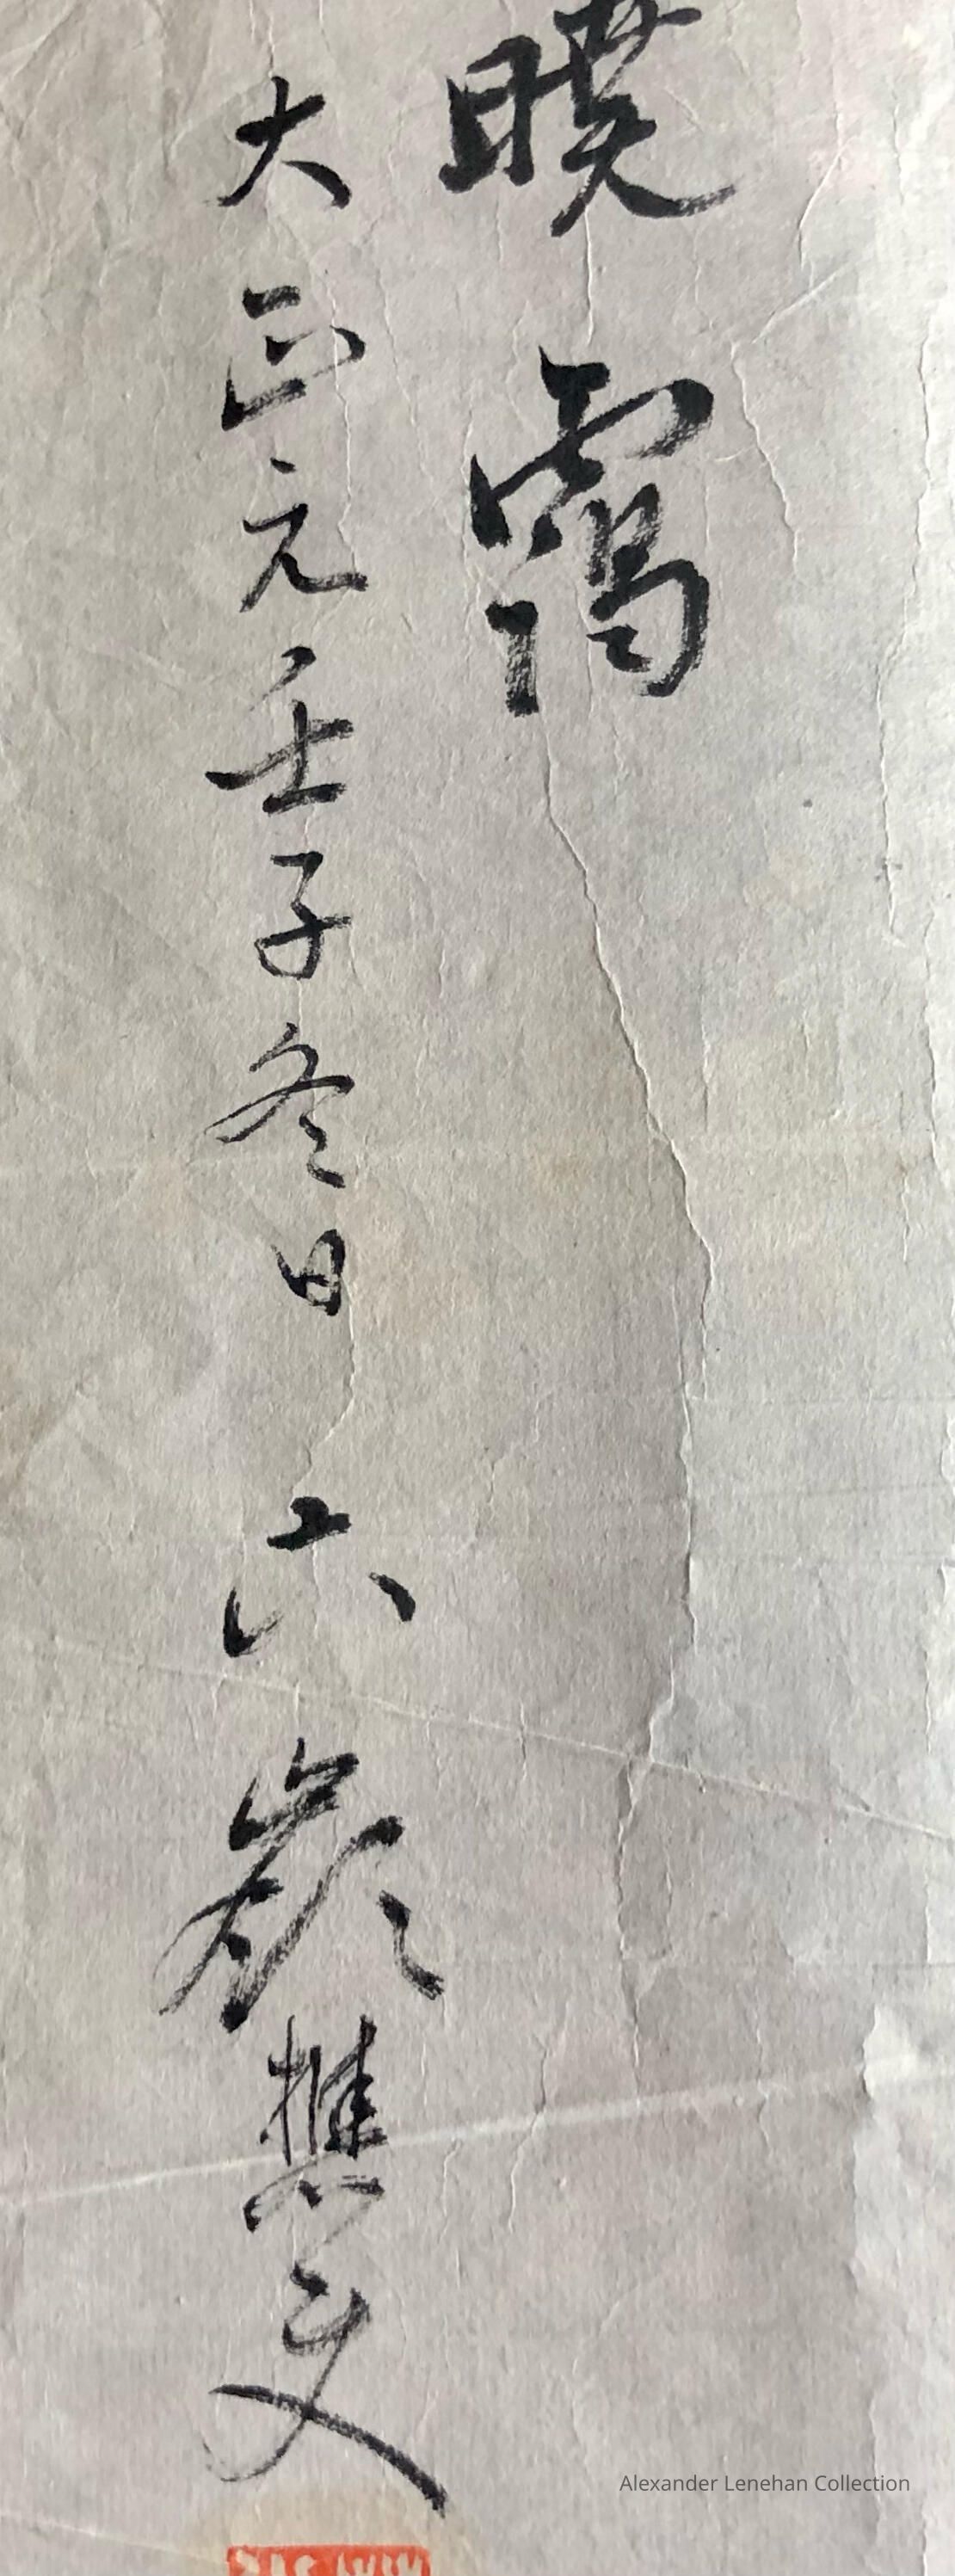 暯靄
大正元壬子冬日 六嶺樵史
Alexander Lenehan Collection